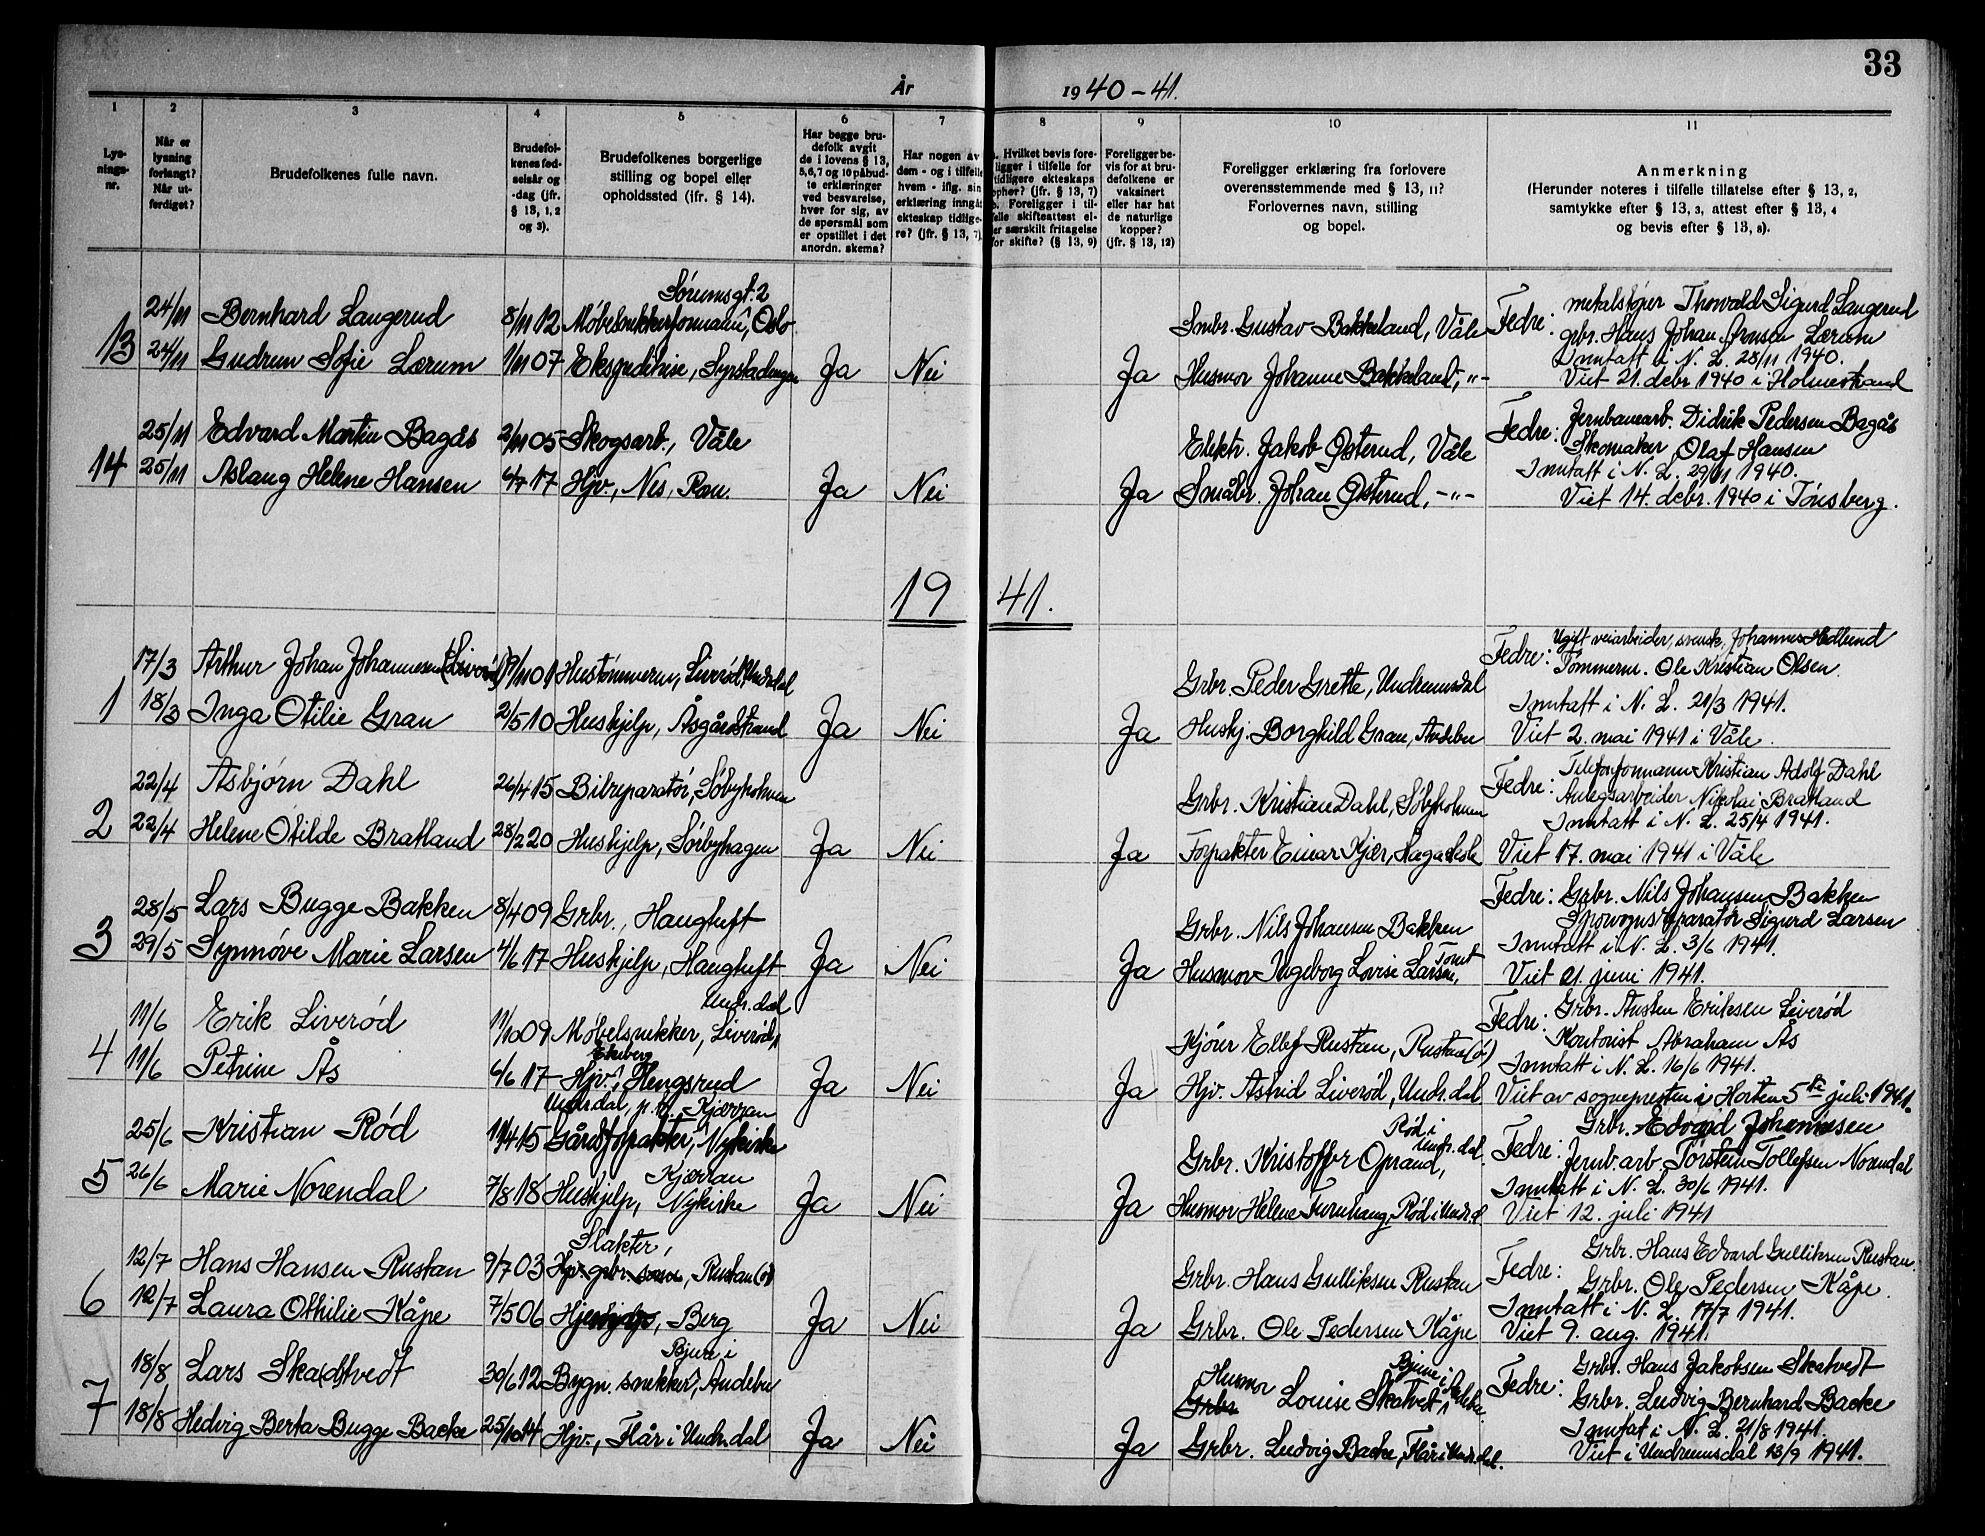 33
År 1940-41.
1 2 3 4 5 6 7 8 9 10 11
Lys-
nings-
nr.
Når er
lysning
forlangt?
Når ut-
ferdiget?
Brudefolkenes fulle navn.
Brudefol-
kenes fød-
selsår og
-dag (jfr.
§ 13, 1, 2
og 3).
Brudefolkenes borgerlige
stilling og bopel eller
opholdssted (jfr. § 14).
Har begge bru-
defolk avgit
de i lovens § 13,
5,6,7 og 10 påbud-
te erklæringer
ved besvarelse,
hver for sig, av
de spørsmål som
er opstillet i det
anordn. skema?
Har nogen av
dem - og i tilfelle
hvem - iflg. sin
erklæring inngåt
ekteskap tidlige-
re? (jfr. § 13, 7)
Hvilket bevis fore-
ligger i tilfelle for
tidligere ekteskaps
ophør? (jfr. § 13, 7)
Foreligger i til-
felle skifteattest el-
er særskilt fritagelse
for skifte? (§ 13, 9)
Foreligger be-
vis for at bru-
defolkene er
vaksinert
eller har hat
de naturlige
kopper?
(jfr. § 13, 12)
Foreligger erklæring fra forlovere
overensstemmende med § 13, 11?
Forlovernes navn, stilling
og bopel.
Anmerkning
(Herunder noteres i tilfelle tillatelse efter § 13, 2,
samtykke efter § 13, 3, attest efter § 13, 4
og bevis efter § 13, 8).
Sørumsgt. 2
24/11 Bernhard Langerud 8/11 12 Møbelsnekkerformann, Oslo
Smbr. Gustav Bakkeland, Våle
Fedre: metalstøper Thorvald Sigurd Langerud
grbr. Hans Johan Jensen Lærum
13 24/11 Gudrun Sofie Lærum 1/11 07 Ekspeditrise, Ja Nei Ja Husmor Johanne Bakkeland, -"-
Inntatt i N. L. 28/11 1940.
Viet 21. debr 1940 i Holmestrand
25/11 Edvard Martin Bagås 2/11 05 Skogsarb., Våle
Elektr. Jakob Østerud, Våle
Fedre: Jernbanearb. Didrik Pedersen Bagås
Skomaker Olaf Hansen
14 25/11 Aslaug Helene Hansen 6/7 17 Hjv., Nes, Ram. Ja Nei Ja Småbr. Johan Østerud, -"-
Inntatt i N. L. 29/11 1940.
Viet 14. debr. 1940 i Tønsberg.
1941.
17/3 Arthur Johan Johannesen (Liverød) 9/11 01 Hustømmerm, Liverød, Undr.dal
Grbr. Peder Grette, Undrumsdal
Fedre: Ugift veiarbeider, svensk, Johannes Hedlund
Tømmerm. Ole Kristian Olsen.
1 18/3 Inga Otilie Gran 2/5 10 Hushjelp, Åsgårdstrand Ja Nei Ja Hushj. Borghild Gran, Andebu
Inntatt i N. L. 21/3 1941.
Viet 2. mai 1941 i Våle.
22/4 Asbjørn Dahl 26/4 15 Bilreparatør, Søbyholmen
Grbr. Kristian Dahl, Søbyholmen
Fedre: Telefonformann Kristian Adolf Dahl
Anlegsarbeider Nikolai Bratland
2 22/4 Helene Otilde Bratland 28/2 20 Hushjelp, Sørbyhagen Ja Nei Ja Forpakter Einar Kjær,
Inntatt i N. L. 25/4 1941.
Viet 17. mai 1941 i Våle
28/5 Lars Bugge Bakken 8/4 09 Grbr., Haugtuft
Grbr. Nils Johansen Bakken
Fedre: Grbr. Nils Johansen Bakken
Sporvognsreparatør Sigurd Larsen
3 29/5 Synnøve Marie Larsen 4/6 17 Hushjelp, Haugtuft Ja Nei Ja Husmor Ingeborg Lovise Larsen, Tomt
Inntatt i N. L. 3/6 1941.
Viet 21. juni 1941.
Undr.dal
11/6 Erik Liverød 11/10 09 Møbelsnekker, Liverød,
Kjører Ellef Rustan, Rustan (ø)
Fedre: Grbr. Austen Eriksen Liverød
Kontorist Abraham Ås
4 11/6 Petrine Ås 6/6 17 Hjv., Ekeberg Hengsrud Ja Nei Ja Hjv. Astrid Liverød, Undr.dal
Inntatt i N. L. 16/6 1941.
Viet av sognepresten i Horten 5te juli 1941.
Undr.dal, p.t. Kjærran
25/6 Kristian Rød 19/4 15 Gårdsforpakter, Nykirke
Grbr. Kristoffer Oprand, Rød i Undr.dal.
Fedre: Grbr. Edvard Johannesen
Jernb.arb. Torstein Tollefsen Norendal
5 26/6 Marie Norendal 7/8 18 Hushjelp, Kjærran Nykirke Ja Nei Ja Husmor Helene Furuhaug, Rød i Undr.d
Inntatt i N. L. 30/6 1941.
Viet 12. juli 1941
Slakter,
12/7 Hans Hansen Rustan 9/7 03 Hjv. grbr. sønn, Rustan (ø)
Grbr. Hans Gulliksen Rustan
Fedre: Grbr. Hans Edvard Gulliksen Rustan.
Grbr. Ole Pedersen Kåpe.
6 12/7 Laura Othilie Kåpe 7/5 06 Berg Ja Nei Ja Grbr. Ole Pedersen Kåpe
Inntatt i N. L. 17/7 1941.
Viet 9. aug. 1941.
18/8 Lars Ska(d)tvedt 30/6 12 Bygn. snekker, Bjune i Andebu
Grbr. Husmor Louise Skatvet, Bjune i Andebu.
Fedre: Grbr. Hans Jakobsen Skatvedt
Grbr. Ludvig Bernhard Backe
7 18/8 Hedvig Berta Bugge Backe 25/10 14 Hjv., Flår i Undr.dal Ja Nei Ja Grbr. Ludvig Backe, Flår i Undr.dal.
Inntatt i N. L. 21/8 1941.
Viet i Undrumsdal 13/9 1941.